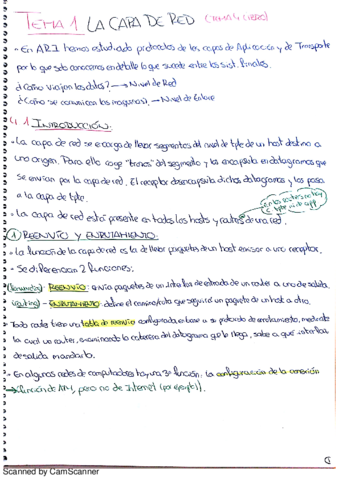 TEMA 1 LA CAPA DE RED (TEMA 4 LIBRO)
- En AR1 hemos estudiado protocolos de las capas de Aplicación y de Transporte
por lo que solo conocemos en detalle lo que sucede entre los sist. finales.
¿Cómo viajan los datos? → Nivel de Red
¿Cómo se comunican las máquinas? → Nivel de Enlace
4.1 INTRODUCCIÓN
- La capa de red se encarga de llevar segmentos del nivel de tpte de un host destino a
uno origen. Para ello coge "trozos" del segmento y los encapsula en datagramas que
se envían por la capa de red. El receptor desencapsula dichos datagramas y los pasa
a la capa de tpte.
- La capa de red está presente en todos los hosts y routers de una red.
① REENVÍO Y ENRUTAMIENTO
- La función de la capa de red es la de llevar paquetes de un host emisor a uno receptor.
- Se diferencian 2 funciones:
(forwarding) - REENVÍO: envía paquetes de un interfaz de entrada de un router a uno de salida.
(routing) - ENRUTAMIENTO: define el camino/ruta que seguirá un paquete de un host a otro.
- Todo router tiene una tabla de reenvío configurada en base a su protocolo de enrutamiento, mediante
la cual un router, examinando la cabecera del datagrama que le llega, sabe a qué interfaz
de salida mandarlo.
- En algunas redes de computadores hay una 3ª función: la configuración de la conexión
→ función de ATM, pero no de Internet (por ejemplo).
①
Scanned by CamScanner